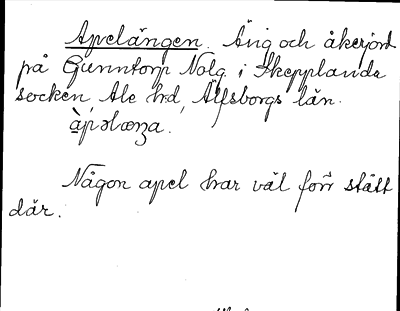 Apelängen. Äng och åkerjord
på Gunntorp Nolg. i Skepplanda
socken, Ale hrd, Älfsborgs län.
Någon apel har väl förr stått
där.